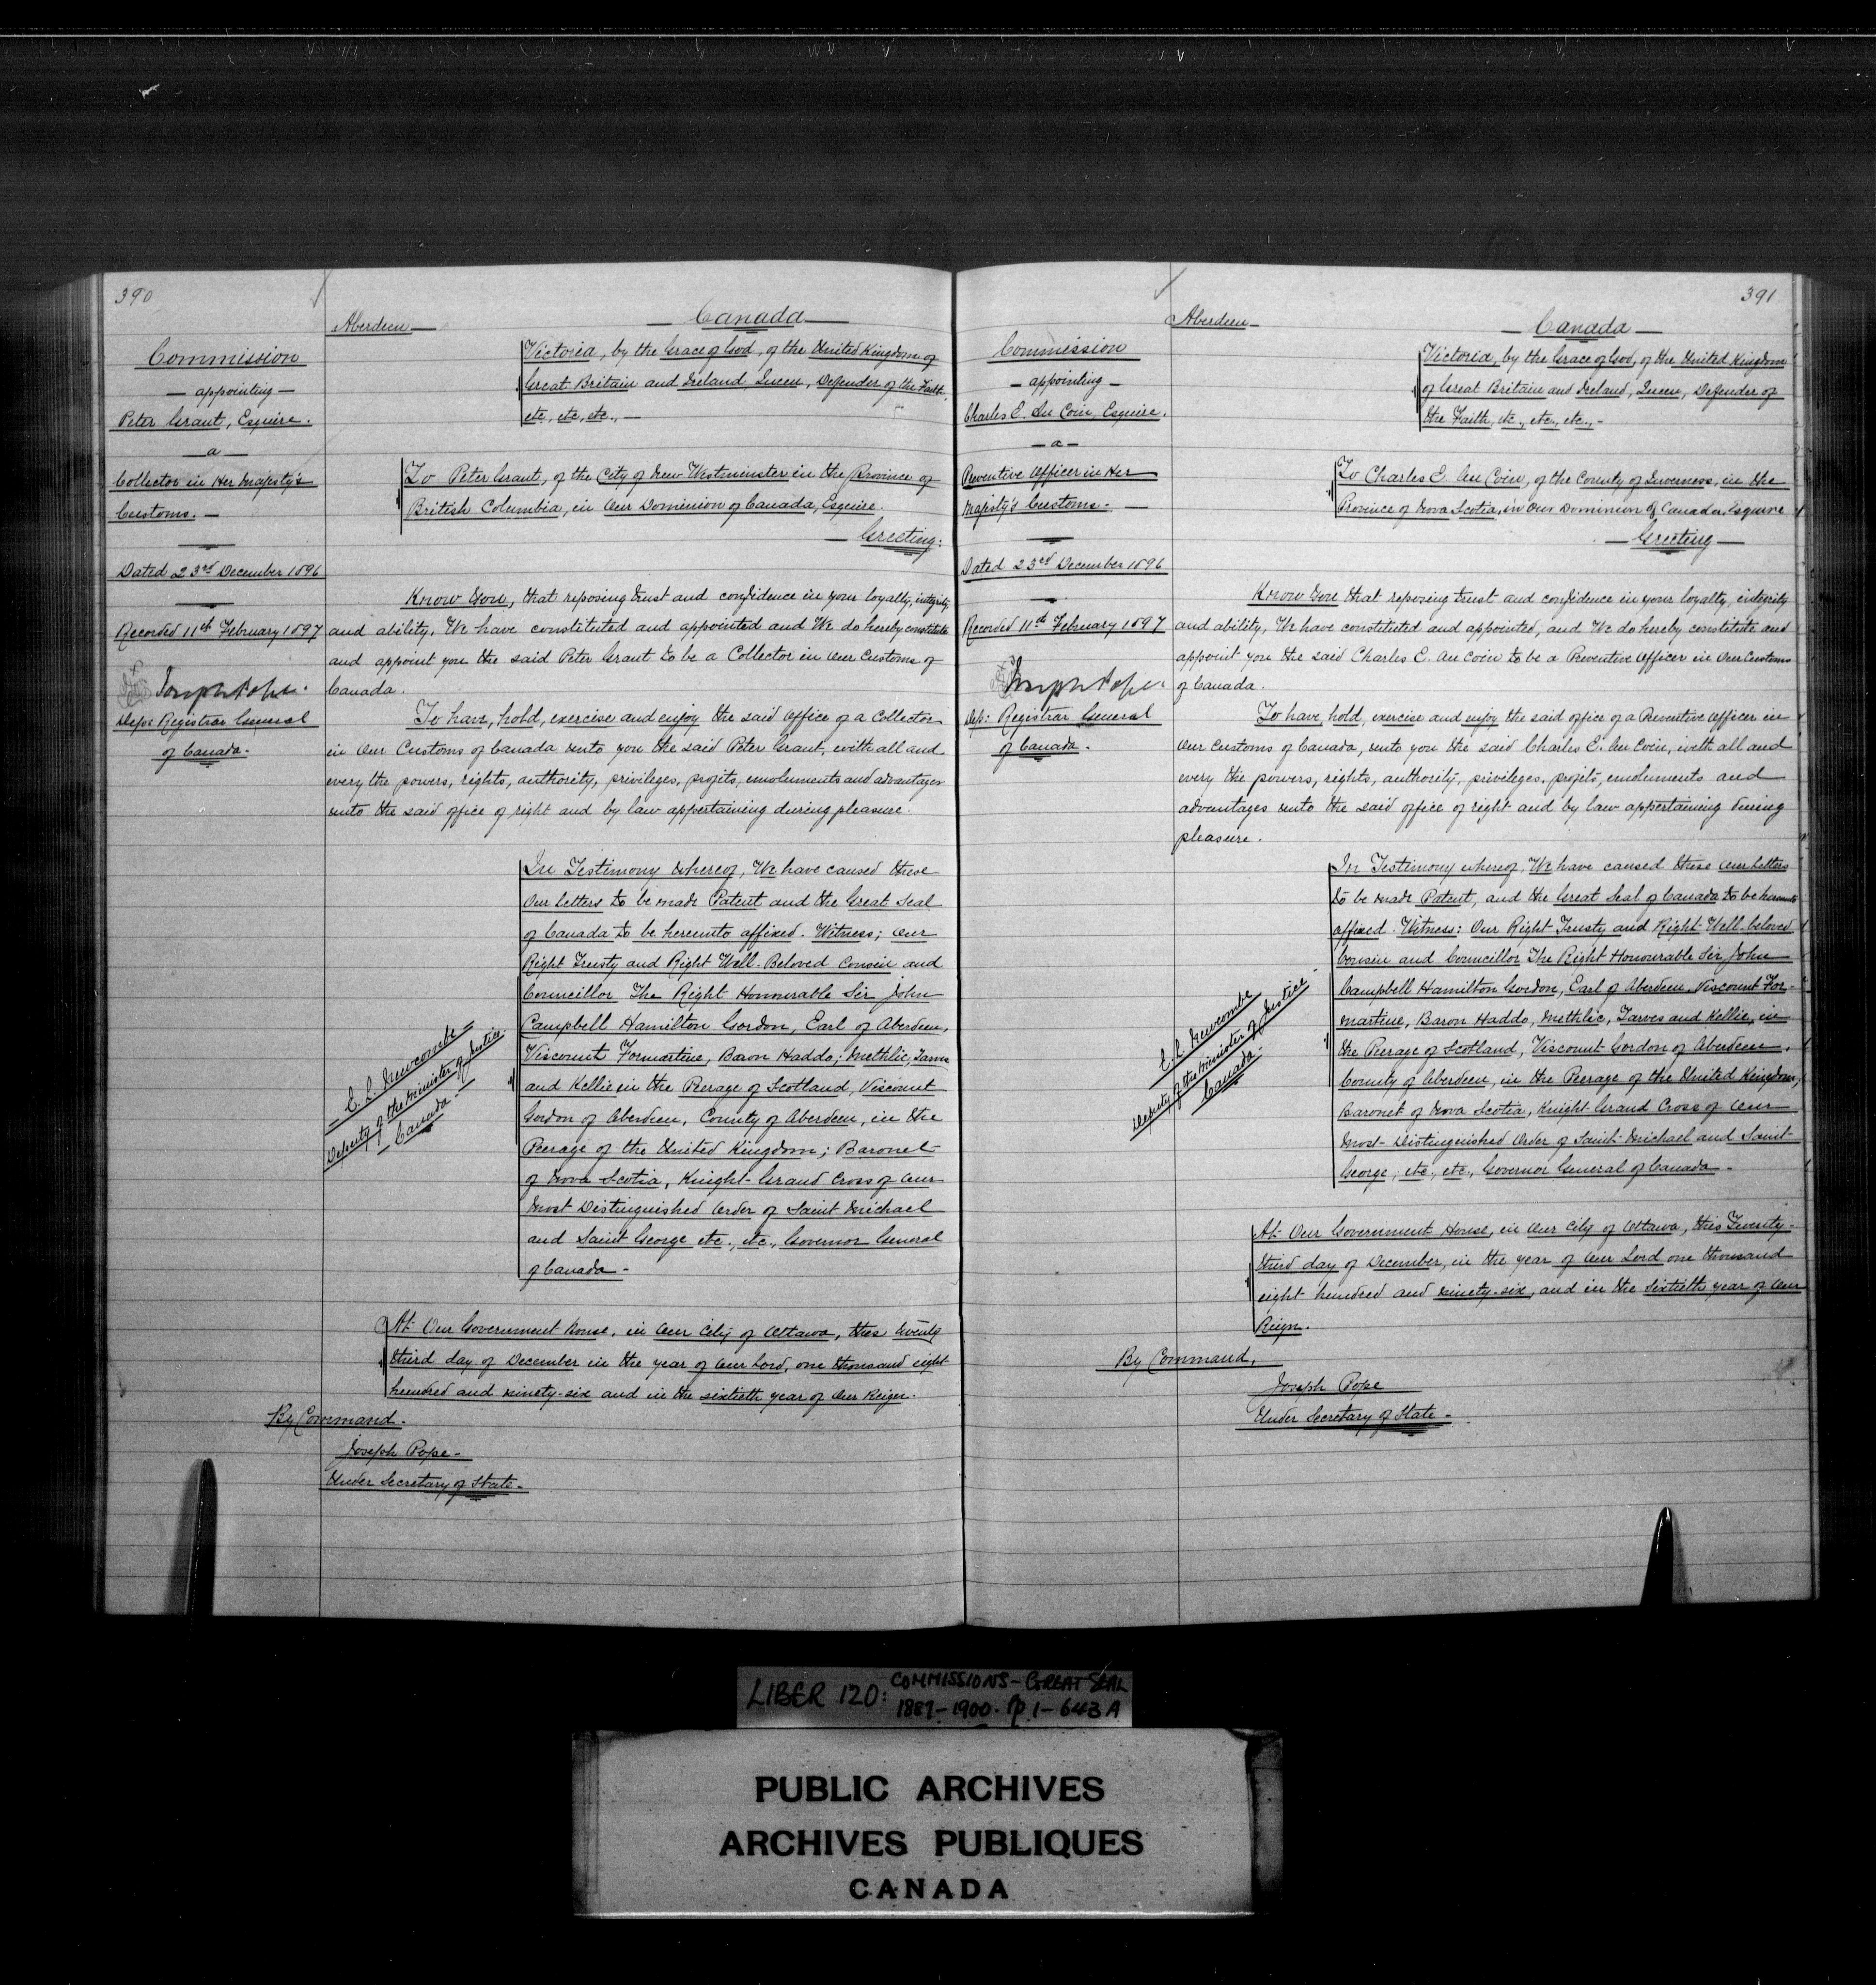 390
Aberdeen
Canada
Commission
appointing
Peter Grant, Esquire.
a
Collector in Her Majesty's
Customs.
Dated 23rd December 1896
Recorded 11th February 1897
Joseph Pope
Dep: Registrar General
of Canada.
Victoria, by the Grace of God, of the United Kingdom of
Great Britain and Ireland Queen, Defender of the Faith,
etc, etc, etc.,
To Peter Grant, of the City of New Westminster in the Province of
British Columbia, in Our Dominion of Canada, Esquire.
Greeting:
Know You, that reposing trust and confidence in your loyalty, integrity,
and ability, We have constituted and appointed and We do hereby constitute
and appoint you the said Peter Grant to be a Collector in Our Customs of
Canada.
To have, hold, exercise and enjoy the said Office of a Collector
in Our Customs of Canada unto you the said Peter Grant, with all and
every the powers, rights, authority, privileges, profits, emoluments and advantages
unto the said office of right and by law appertaining during pleasure.
In Testimony Whereof, We have caused these
Our Letters to be made Patent and the Great Seal
of Canada to be hereunto affixed. Witness; Our
Right Trusty and Right Well-Beloved Cousin and
Councillor The Right Honourable Sir John
Campbell Hamilton Gordon, Earl of Aberdeen,
Viscount Formartine, Baron Haddo, Methlic, Tarves
and Kellie in the Peerage of Scotland, Viscount
Gordon of Aberdeen, County of Aberdeen, in the
Peerage of the United Kingdom; Baronet
of Nova Scotia, Knight Grand Cross of Our
Most Distinguished Order of Saint Michael
and Saint George etc., etc., Governor General
of Canada.
E. L. Newcombe
Deputy of the Minister of Justice
Canada
At Our Government House, in Our City of Ottawa, this twenty
third day of December in the year of Our Lord, one thousand eight
hundred and ninety-six and in the sixtieth year of Our Reign.
By Command.
Joseph Pope
Under Secretary of State
391
Aberdeen
Canada
Commission
appointing
Charles E. Au Coin, Esquire.
a
Preventive Officer in Her
Majesty's Customs.
Dated 23rd December 1896
Recorded 11th February 1897
Joseph Pope
Dep: Registrar General
of Canada.
Victoria, by the Grace of God, of the United Kingdom
of Great Britain and Ireland, Queen, Defender of
the Faith, etc., etc., etc.,
To Charles E. Au Coin, of the County of Inverness, in the
Province of Nova Scotia, in Our Dominion of Canada, Esquire
Greeting
Know You that reposing trust and confidence in your loyalty, integrity
and ability, We have constituted and appointed, and We do hereby constitute and
appoint you the said Charles E. Au Coin to be a Preventive Officer in Our Customs
of Canada.
To have, hold, exercise and enjoy the said office of a Preventive Officer in
Our Customs of Canada, unto you the said Charles E. Au Coin, with all and
every the powers, rights, authority, privileges, profits, emoluments and
advantages unto the said office of right and by law appertaining during
pleasure.
In Testimony whereof, We have caused these Our Letters
to be made Patent, and the Great Seal of Canada to be hereunto
affixed. Witness: Our Right Trusty and Right Well-beloved
Cousin and Councillor The Right Honourable Sir John
Campbell Hamilton Gordon, Earl of Aberdeen, Viscount For-
martine, Baron Haddo, Methlic, Tarves and Kellie, in
the Peerage of Scotland, Viscount Gordon of Aberdeen,
County of Aberdeen, in the Peerage of the United Kingdom,
Baronet of Nova Scotia, Knight Grand Cross of Our
Most Distinguished Order of Saint Michael and Saint
George, etc., etc., Governor General of Canada.
E. L. Newcombe
Deputy of the Minister of Justice
Canada.
At Our Government House, in Our City of Ottawa, this Twenty-
third day of December, in the year of Our Lord one thousand
eight hundred and ninety-six, and in the sixtieth year of Our
Reign.
By Command,
Joseph Pope
Under Secretary of State
LIBER 120: COMMISSIONS - GREAT SEAL
1887-1900. pp 1-643A
PUBLIC ARCHIVES
ARCHIVES PUBLIQUES
CANADA